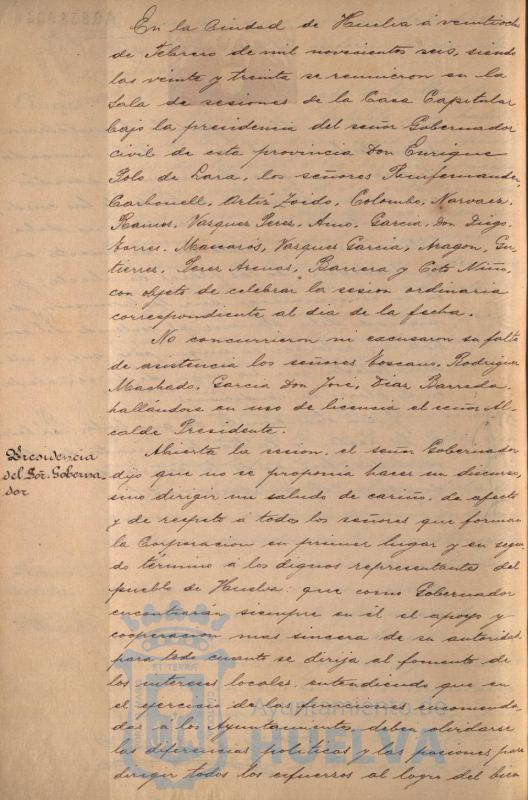 En la Ciudad de Huelva á veintiocho
de Febrero de mil novecientos seis, siendo
las veinte y treinta se reunieron en la
Sala de sesiones de la Casa Capitular
bajo la presidencia del señor Gobernador
civil de esta provincia Don Enrique
Polo de Lara, los señores
Carbonell, Ortíz Zoido, Colombo, Narvaez,
Ramos, Vazquez Perez, Amo, Garcia, Don Diego,
Torres, Mascarós, Vazquez Garcia, Aragon, Gu-
tierrez, Perez Arenas, Barrera y Coto Niño,
con objeto de celebrar la sesion ordinaria
correspondiente al dia de la fecha.
No concurrieron ni excusaron su falta
de asistencia los señores Toscano, Rodriguez
Machado, Garcia Don José, Diaz Barreda,
hallándose en uso de licencia el señor Al-
calde Presidente.
Presidencia
del Sor. Goberna-
dor
Abierta la sesion, el señor Gobernador
dijo que no se proponia hacer un discurso,
sino dirigir un saludo de cariño, de afecto
y de respeto á todos los señores que forman
la Corporacion en primer lugar y en segun-
do término á los dignos representantes del
pueblo de Huelva: que como Gobernador
encontrarán siempre en él el apoyo y
cooperacion mas sincera de su autoridad
para todo cuanto se dirija al fomento de
los intereses locales, entendiendo que en
el ejercicio de las funciones encomenda-
das á los Ayuntamientos, deben olvidarse
las diferencias politicas y las pasiones para
dirigir todos los esfuerzos al logro del bien
Ayuntamiento de
HUELVA